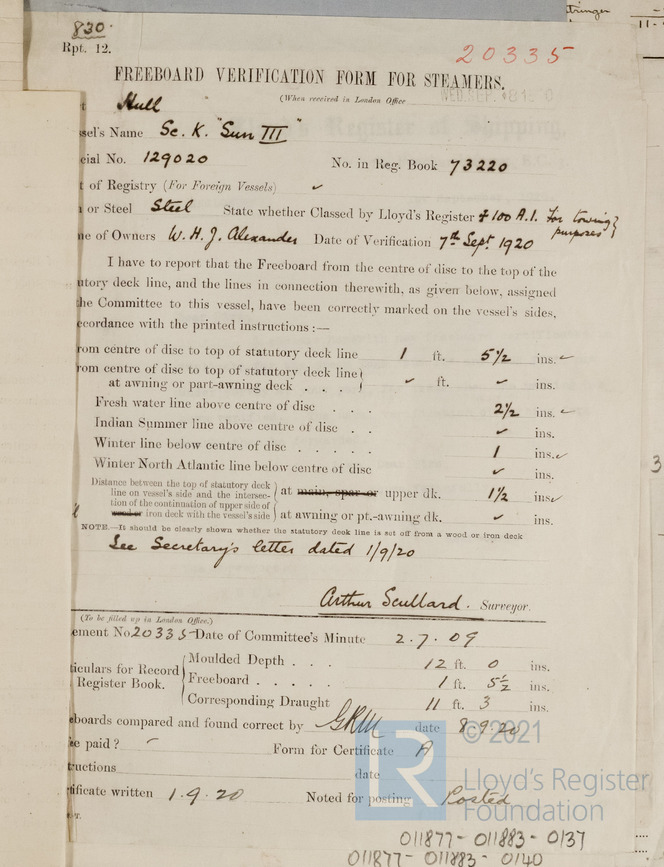 830
Rpt. 12.
20335
FREEBOARD VERIFICATION FORM FOR STEAMERS.
(When received in London Office
WED. SEP. 8 19 0
Hull
ssel's Name Sc. K. "Sun III"
cial No. 129020 No. in Reg. Book 73220
of Registry (For Foreign Vessels) ✓
or Steel Steel State whether Classed by Lloyd's Register +100 A.1. For towing purposes
ne of Owners W. H. J. Alexander Date of Verification 7th Sept. 1920
I have to report that the Freeboard from the centre of disc to the top of the
utory deck line, and the lines in connection therewith, as given below, assigned
the Committee to this vessel, have been correctly marked on the vessel's sides,
ccordance with the printed instructions :—
rom centre of disc to top of statutory deck line 1 ft. 5 1/2 ins. ✓
rom centre of disc to top of statutory deck line
at awning or part-awning deck . . . ✓ ft. ✓ ins.
Fresh water line above centre of disc . . . 2 1/2 ins. ✓
Indian Summer line above centre of disc . . ✓ ins.
Winter line below centre of disc . . . . . 1 ins. ✓
Winter North Atlantic line below centre of disc ✓ ins.
Distance between the top of statutory deck
line on vessel's side and the intersec-
tion of the continuation of upper side of
wood or iron deck with the vessel's side
at main, spar or upper dk. 1 1/2 ins ✓
at awning or pt.-awning dk. ✓ ins.
NOTE.—It should be clearly shown whether the statutory deck line is set off from a wood or iron deck
See Secretary's letter dated 1/9/20
Arthur Scullard. Surveyor.
(To be filled up in London Office.)
ement No 20335 Date of Committee's Minute 2.7.09
ticulars for Record
Register Book.
Moulded Depth . . . 12 ft. 0 ins.
Freeboard . . . . . 1 ft. 5 1/2 ins.
Corresponding Draught 11 ft. 3 ins.
eboards compared and found correct by GRM date 8.9.20
ee paid ? Form for Certificate A
tructions date
tificate written 1.9.20 Noted for posting Posted
© 2021
Lloyd's Register
Foundation
011877-011883-0137
011877-011883-0140
tringer
11-
3